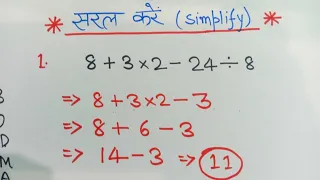 * सरल करें (Simplify) *
1. 8 + 3 × 2 − 24 ÷ 8
⇒ 8 + 3 × 2 − 3
⇒ 8 + 6 − 3
⇒ 14 − 3 ⇒ 11
B
O
D
M
A